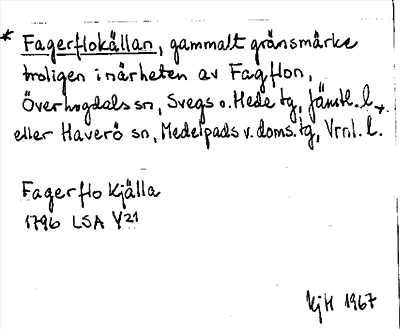 * Fagerflokällan, gammalt gränsmärke
troligen i närheten av Fagflon,
Överhogdals sn, Svegs o. Hede tg, Jämtl. l.
eller Haverö sn, Medelpads v. doms. tg, Vrnl. l.
Fagerflo Kjälla
1796 LSA Y21
KjH 1967